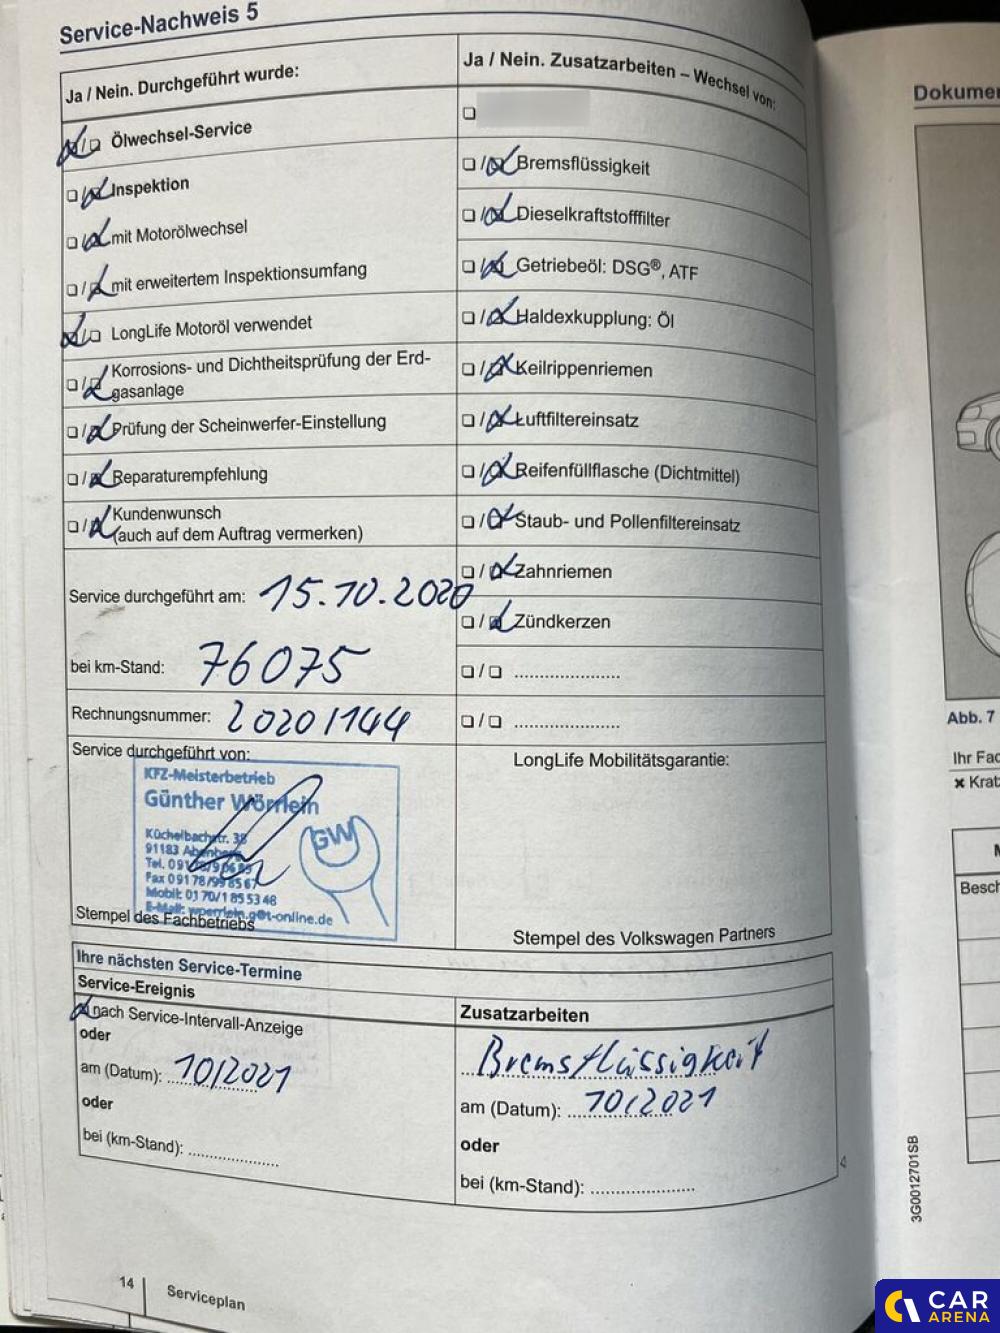 Service-Nachweis 5
Ja / Nein. Durchgeführt wurde:
Ölwechsel-Service
Inspektion
mit Motorölwechsel
mit erweitertem Inspektionsumfang
LongLife Motoröl verwendet
Korrosions- und Dichtheitsprüfung der Erd-
gasanlage
Prüfung der Scheinwerfer-Einstellung
Reparaturempfehlung
Kundenwunsch
(auch auf dem Auftrag vermerken)
Service durchgeführt am: 15.10.2020
bei km-Stand: 76075
Rechnungsnummer: 20201144
Service durchgeführt von:
KFZ-Meisterbetrieb
Günther Wörrlein
GW
Küchelbachstr. 38
91183 Abenberg
Tel.
Fax 09178/998567
Mobil: 0170/1855348
E-Mail: woerrlein.g@t-online.de
Stempel des Fachbetriebs
Ja / Nein. Zusatzarbeiten – Wechsel von:
Bremsflüssigkeit
Dieselkraftstofffilter
Getriebeöl: DSG®, ATF
Haldexkupplung: Öl
Keilrippenriemen
Luftfiltereinsatz
Reifenfüllflasche (Dichtmittel)
Staub- und Pollenfiltereinsatz
Zahnriemen
Zündkerzen
LongLife Mobilitätsgarantie:
Stempel des Volkswagen Partners
Ihre nächsten Service-Termine
Service-Ereignis
nach Service-Intervall-Anzeige
oder
am (Datum): 10/2021
oder
bei (km-Stand):
Zusatzarbeiten
Bremsflüssigkeit
am (Datum): 10/2021
oder
bei (km-Stand):
14
Serviceplan
Dokumen
Abb. 7
Ihr Fac
Krat
Besch
3G0012701SB
CAR
ARENA